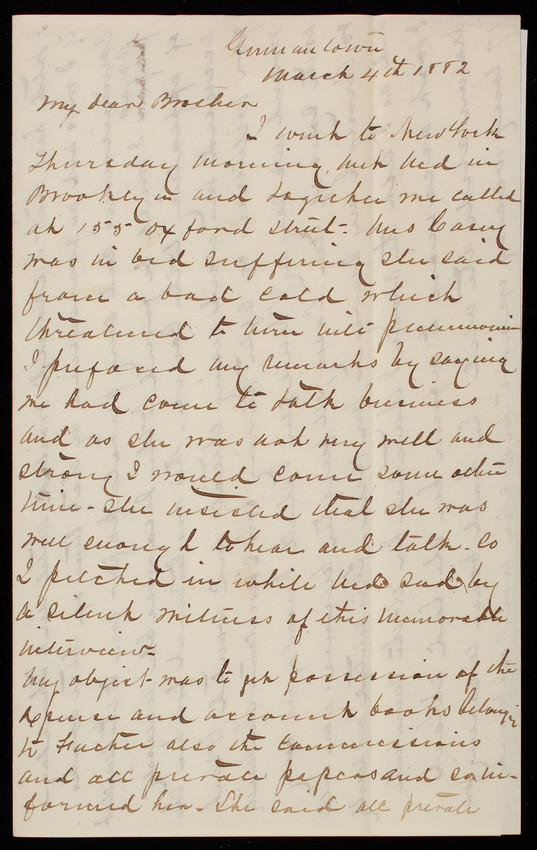 Germantown
March 4th 1882
My dear Brother
I went to New York
Thursday morning, met Ned in
Brooklyn and together we called
at 155 Oxford Street. Mrs Casey
was in bed suffering she said
from a bad cold which
threatened to turn into pneumonia
I prefaced my remarks by saying
we had come to talk business
and as she was not very well and
strong I would come some other
time - she insisted that she was
well enough to hear and talk - So
I pitched in while Ned sat by
a silent witness of this memorable
interview.
My object was to get possession of the
expense and account books belonging
to Father also the Commissions
and all private papers and so in-
formed her. She said all private